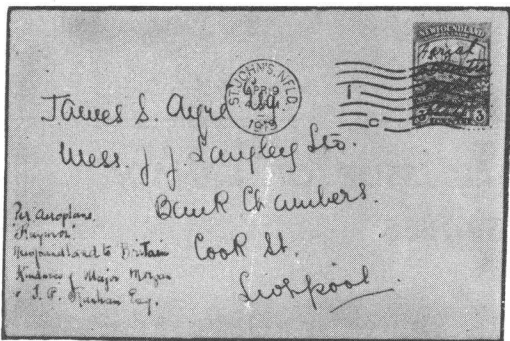 NEWFOUNDLAND
ST. JOHN'S, NFLD.
APR 19
1919
3 3
James S. Ayre Esq.
Mess. J J. Langley Ltd.
Bank Chambers.
Cook St.
Liverpool
Per Aeroplane,
"Raymor"
Newfoundland to Britain
Kindness of Major Morgan